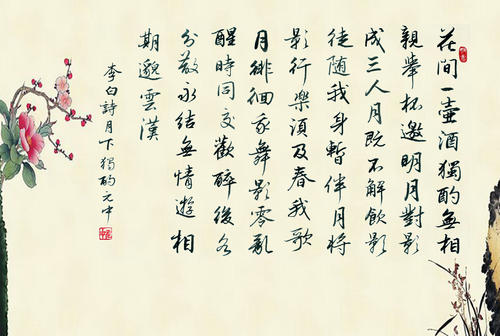 花間一壺酒獨酌無相
親舉杯邀明月對影
成三人月既不解飲影
徒隨我身暫伴月將
影行樂須及春我歌
月徘徊我舞影零亂
醒時同交歡醉後各
分散永結無情遊相
期邈雲漢
李白詩月下獨酌元中